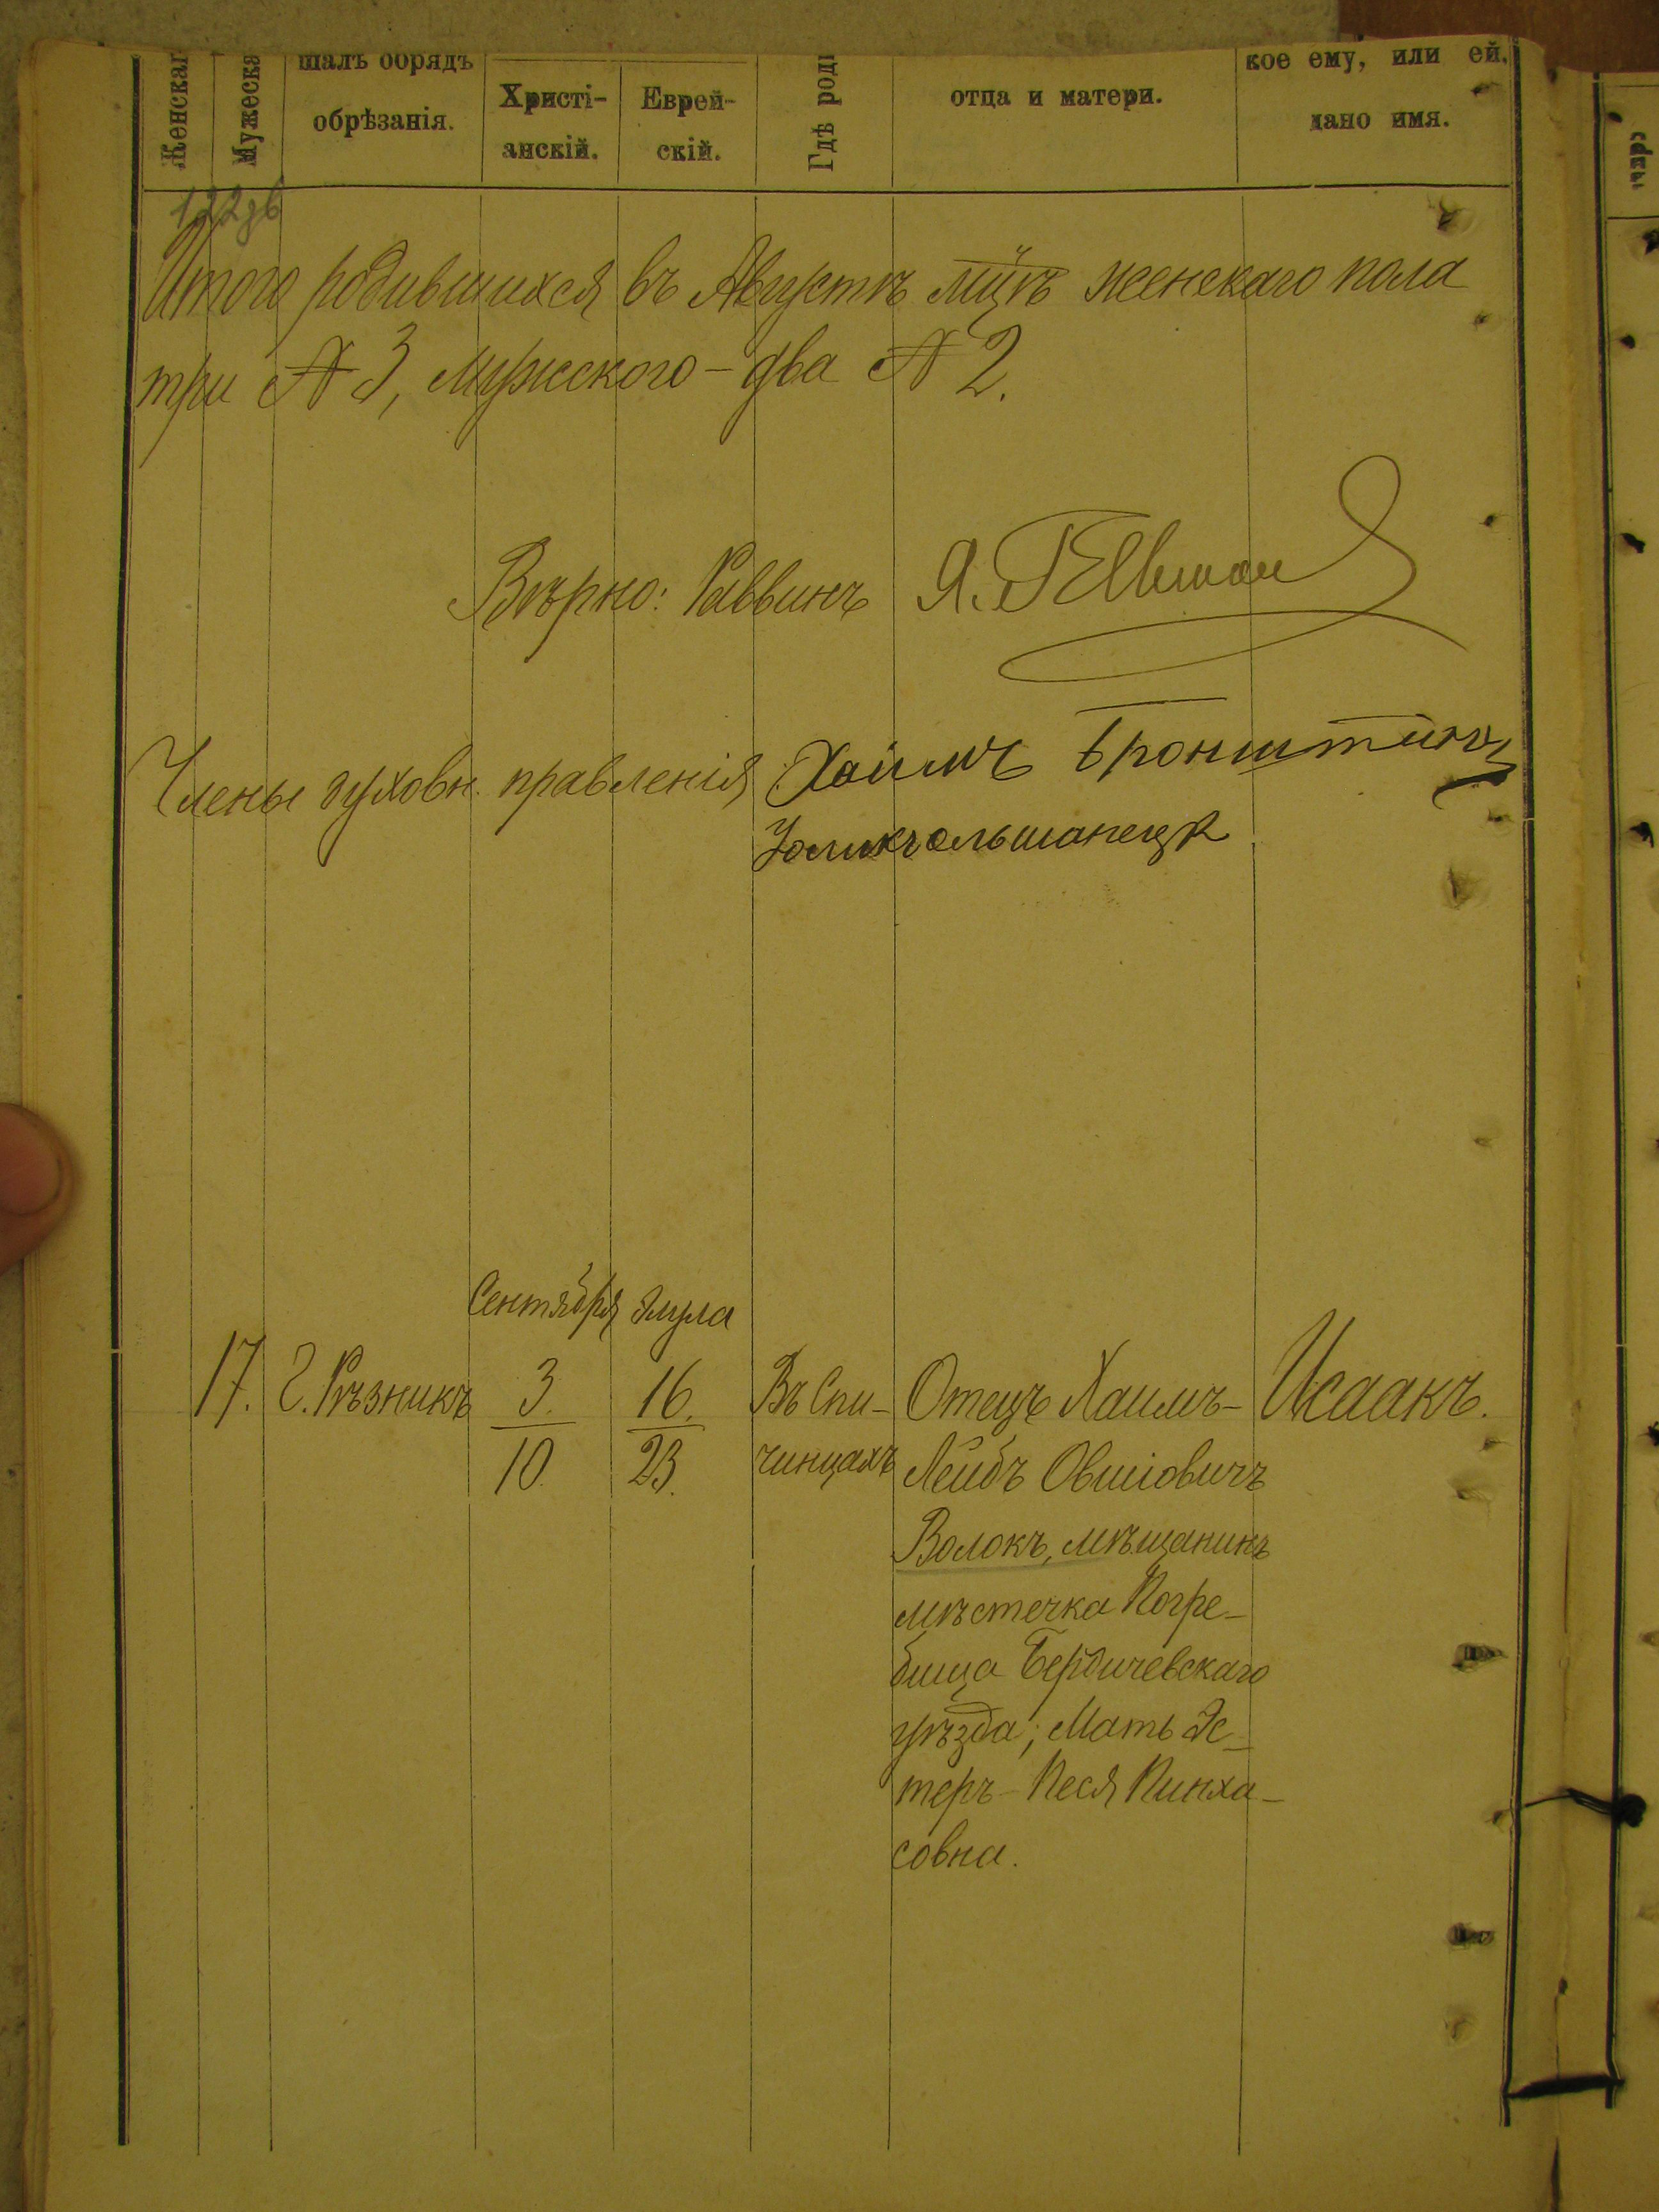 Женска
Мужеска
шалъ обрядъ
обрѣзанія.
Христі-
анскій.
Еврей-
скій.
Гдѣ роди
отца и матери.
кое ему, или ей,
дано имя.
122
Итого родившихся въ Августѣ мцѣ женскаго пола
три № 3, мужского - два № 2.
Вѣрно: Раввинъ Я.
Члены духовн. правленія: Хаимъ Бронштейнъ
Сентября Элула
17. Г. Рѣзникъ 3. 16. Въ Спи- Отецъ Хаимъ- Исаакъ.
10. 23. чинцахъ Лейбъ Овшіовичъ
Волокъ, мѣщанинъ
мѣстечка Погре-
бища Бердичевскаго
уѣзда; Мать Эс-
теръ - Песя Пинха-
совна.